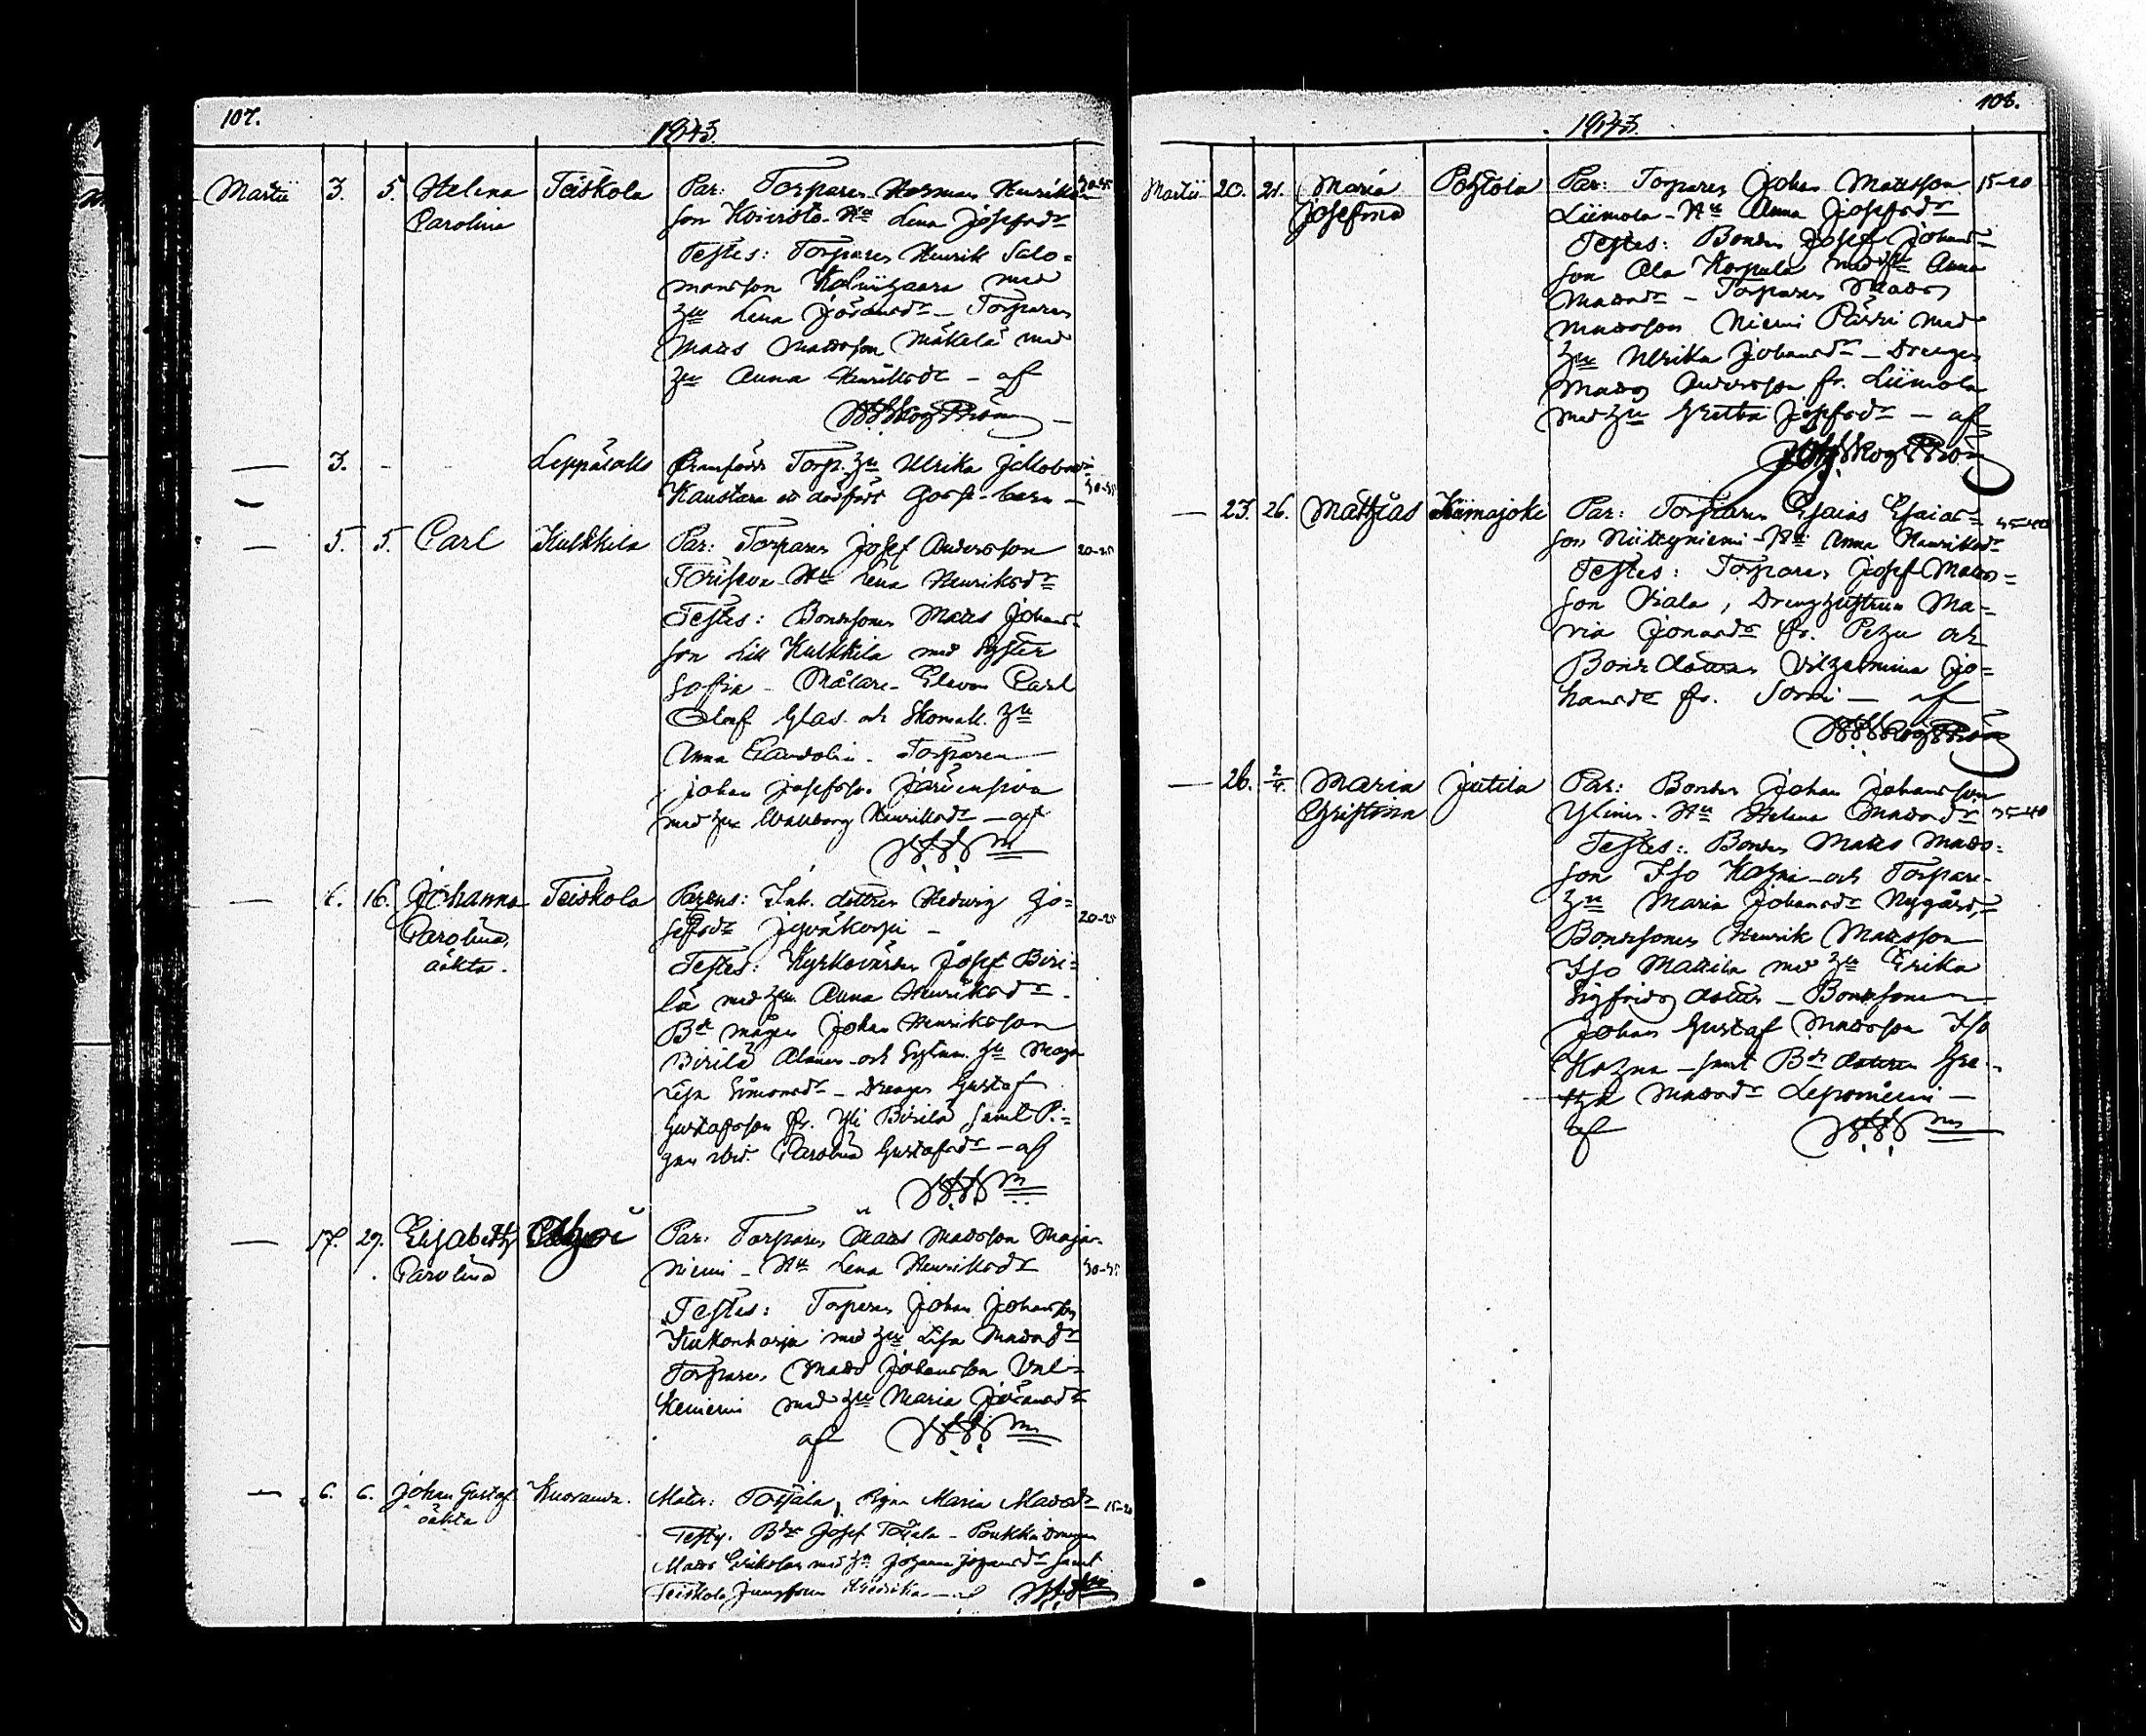 107.
1843.
Martii 3. 5. Helena Teiskola Par: Torparen Herman Henriks 30-35
Carolina son Koivisto - Hu Lena Josefsdr
Testes: Torparen Henrik Salo-
monsson med
hu Lena Johansdr - Torparen
Matts Mattsson Mäkelä med
hu Anna Henriksdr - af
— 3. - Leppäsalls Framfödde Torp. hu Ulrika Jakobsdr
Kaustara ett dödfödt Gosse-barn - 30-35
— 5. 5. Carl Kulkkila Par: Torparen Josef Andersson 20-25
Toriseva - Hu Lena Henriksdr
Testes: Bondesonen Matts Johans-
son Lill Kulkkila med Syster
Sofia - Målare-Eleven Carl
Olof Glas. och Skomak. hu
Anna - Torparen
Johan Josefsson Järvensivu
med hu Wallborg Henriksdr - af
— 6. 16. Johanna Teiskola Parens: Inh. dottren Hedvig Jo- 20-25
Carolina, sefsdr
oäkta. Testes: Kyrkovärden Josef Biri-
lä med hu Anna Henriksdr -
Bde mågen Johan Henriksson
Birilä och hu Maja
Lisa Simonsdr - Drengen Gustaf
Gustafsson fr. Yli Birilä samt Pi-
gan ibid. Carolina Gustafsdr - af
— 17. 29. Elisabeth Par: Torparen Matts Mattsson Maja-
Carolina niemi - Hu Lena Henriksdr 30-35
Testes: Torparen Johan Johansson
Kukonharja med hu Lisa Mattsdr
Torparen Matts Johansson Vali-
keniemi med hu Maria Johansdr
af
— 6. 6. Johan Gustaf Kuoranda. Mater: Torjala, Pigan Maria Mattsdr 15-20
oäkta Testes. Bde Josef Torjala - Poukka Drengen
Matts Eriksson med hu Johanna Johansdr samt
Teiskola Jungfrun Fredrika - af
108.
1843.
Martii 20. 21. Maria Pohtola Par: Torparen Johan Mattsson 15-20
Josefina Liimola - Hu Anna Josefsdr
Testes: Bonden Josef Johans-
son Ala Korpula med hu Anna
Mattsdr - Torparen Matts
Mattsson Niemi Pärri med
hu Ulrika Johansdr - Drengen
Matts Andersson fr. Liimola
med hu Gretha Josefsdr - af
— 23. 26. Matthias Kiimajoki Par: Torparen Esaias Esaias- 35-40
son Niittyniemi - Hu Anna Henriksdr
Testes: Torparen Josef Matts-
son Ojala, Drenghustrun Ma-
ria Jonasdr fr. Pehu och
Bondedottren Vilhelmina Jo-
hansdr fr. Sorri - af
— 26. 2/4. Maria Jutila Par: Bonden Johan Johansson
Christina Ylinen - Hu Helena Mattsdr 35-40
Testes: Bonden Matts Matts-
son Iso Kahra - och Torpare-
hu Maria Johansdr Nygård,
Bondesonen Henrik Mattsson
Iso Mattila med hu Erika
Sigfrids dotter - Bondesonen
Johan Gustaf Mattsson Iso
Kahra - samt Bde dottren Gre-
tha Mattsdr Leponiemi -
af